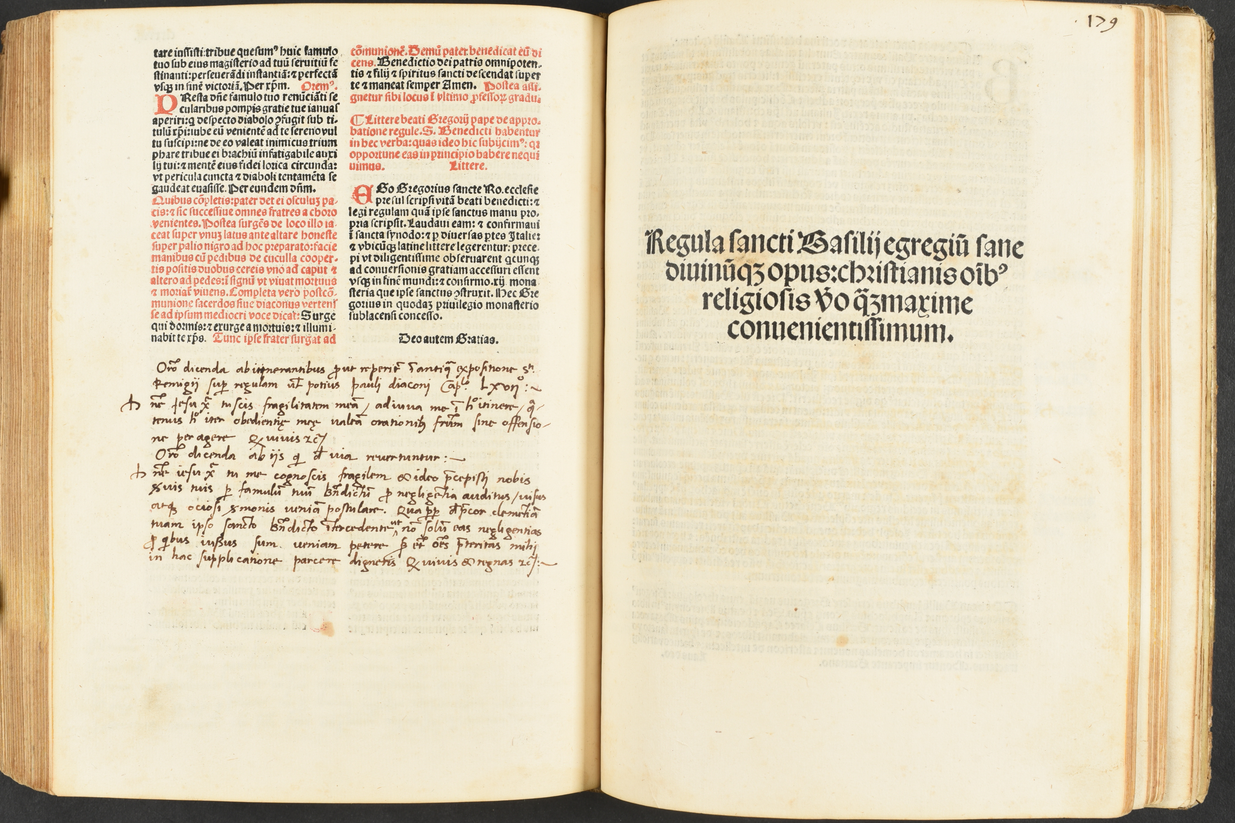 tare iussisti: tribue quesumꝰ huic famulo
tuo sub eius magisterio ad tuū seruitiū fe
stinanti: perseuerādi instantiā: ⁊ perfectā
vsq̃ in finē victoriā. Per xp̃m. Oremꝰ.
PResta dñe famulo tuo renūciāti se
cularibus pompis gratie tue ianuas
aperiri: q̃ despecto diabolo ꝯfugit sub ti-
tulū xp̃i: iube eū venientē ad te sereno vul
tu suscipi: ne de eo valeat inimicus trium
phare tribue ei brachiū infatigabile auxi
lij tui: ⁊ mentē eius fidei lorica circunda:
vt pericula cuncta ⁊ diaboli tentamēta se
gaudeat euasisse. Per eundem dñm.
Quibus cōpletis: pater det ei osculuꝫ pa-
cis: ⁊ sic successiue omnes fratres a choro
venientes. Postea surgēs de loco illo ia-
ceat super vnuꝫ latus ante altare honeste
super palio nigro ad hoc preparato: facie
manibus cū pedibus de cuculla cooper-
tis positis duobus cereis vno ad caput ⁊
altero ad pedes: ī signū vt viuat mortuus
⁊ moriat᷑ viuens. Completa vero postcō-
munione sacerdos siue diaconus vertens
se ad ipsum mediocri voce dicat: Surge
qui dormis: ⁊ exurge a mortuis: ⁊ illumi-
nabit te xp̃s. Tunc ipse frater surgat ad
cōmunionē. Demū pater benedicat eū di
cens. Benedictio dei patris omnipoten-
tis ⁊ filij ⁊ spiritus sancti descendat super
te ⁊ maneat semper Amen. Postea assi
gnetur sibi locus ī vltimo ꝓfessoꝝ gradu.
¶ Littere beati Gregorij pape de appro-
batione regule. S. Benedicti habentur
in hec verba: quas ideo hic subijcimꝰ: qꝛ
opportune eas in principio habere nequi
uimus. Littere.
EGo Gregorius sancte Ro. ecclesie
presul scripsi vitā beati benedicti: ⁊
legi regulam quā ipse sanctus manu pro-
pria scripsit. Laudaui eam: ⁊ confirmaui
ī sancta synodo: ⁊ ꝑ diuersas ꝑtes Italie:
⁊ vbicūq̃ latine littere legerentur: prece-
pi vt diligentissime obseruarent q̃cunq̃
ad conuersionis gratiam accessuri essent
vsq̃ in finē mundi: ⁊ confirmo .xij. mona
steria que ipse sanctus ꝯstruxit. Hec Gre
gorius in quodaꝫ priuilegio monasterio
sublacensi concesso.
Deo autem Gratias.
Oro dicenda ab itinerantibus ꝓut reperit᷑ ī antiq̃ expositione sti
Remigij suꝑ regulam ul potius pauli diaconi Capo LXVII:~
Dne Jesu x̃ tu scis fragilitatem meā / adiuua me ī h̃ itinere /
tenus h̃ iter obedientię meę ualeā orationibꝫ fratrum sine offensio-
ne peragere Qui uiuis ⁊c/
Oro dicenda ab ijs q̃ d̃ uia reuertuntur:~
Dne iesu x̃ tu me cognoscis fragilem & ideo p̃cepisti nobis
seruis tuis ꝑ famulum tuū bñdictū ꝓ negligētia auditus / uisus
atq̃ ociosi sermonis ueniā postulare. Qua ꝓpter dep̃cor clemētiā
tuam ipso sancto bñdicto ītercedente ut nō solū eas negligentias
ꝓ q̃bus iussus sum ueniam petere sed et oēs p̃teritas mihi
in hac supplicatione parcere digneris Qui uiuis & regnas ⁊c/:~
179
Regula sancti Basilij egregiū sane
diuinūqꝫ opus: christianis oībꝰ
religiosis vo q̃ꝫmaxime
conuenientissimum.